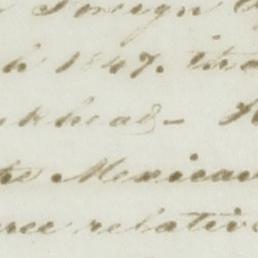 Foreign
h 1847. tha
khead - 
the Mexican
ree relative